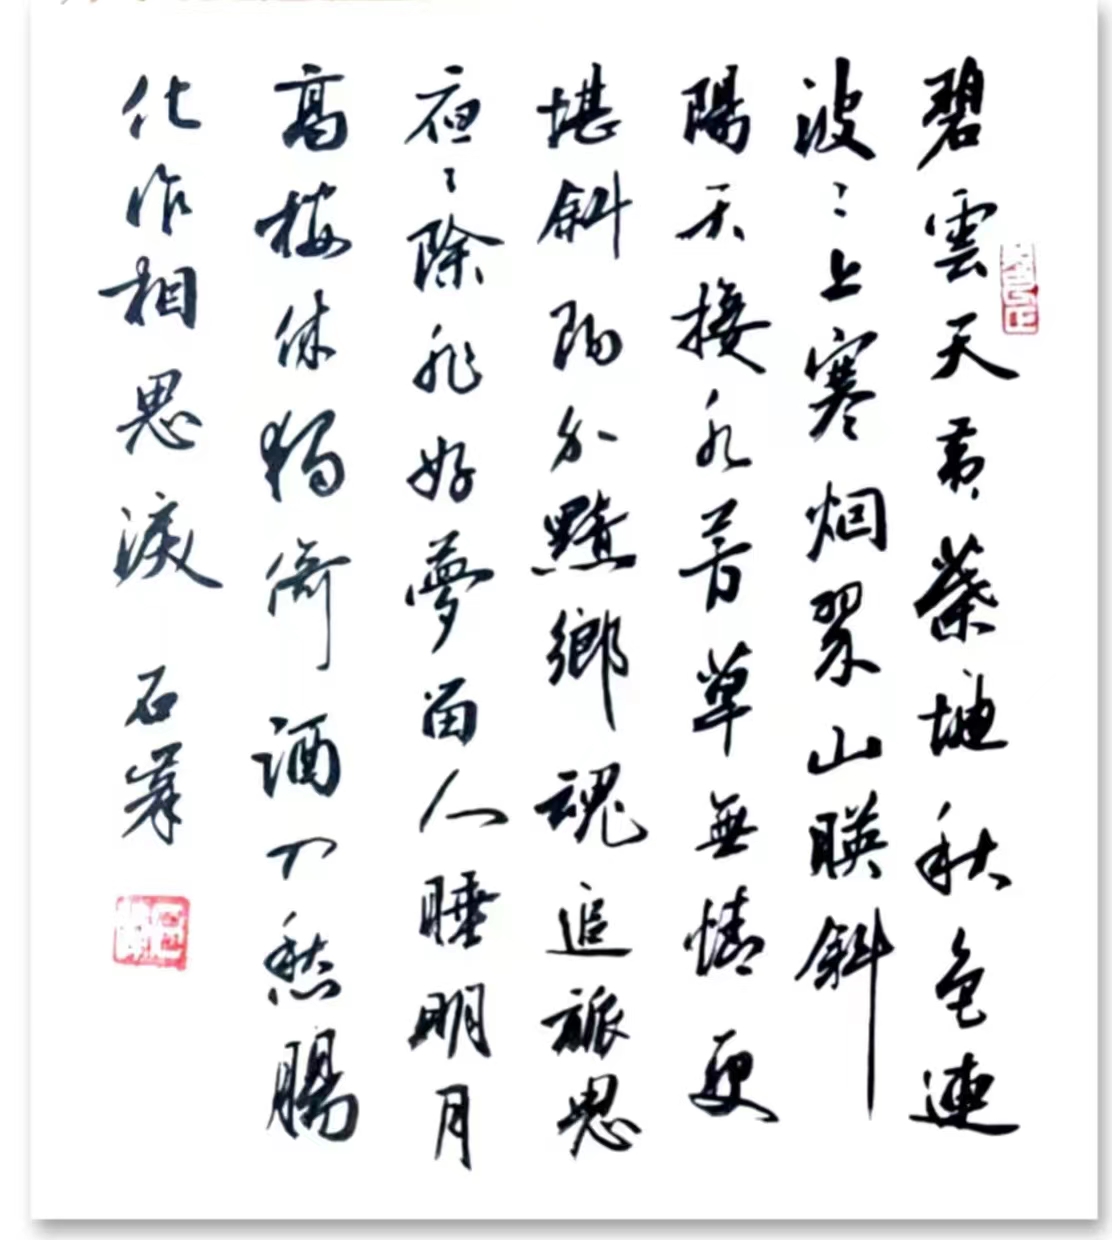 碧雲天黄葉地秋色連
波〻上寒烟翠山暎斜
陽天接水芳草無情更
堪斜阳外黯鄉魂追旅思
夜〻除非好夢留人睡明月
高樓休獨倚酒入愁腸
化作相思淚 石